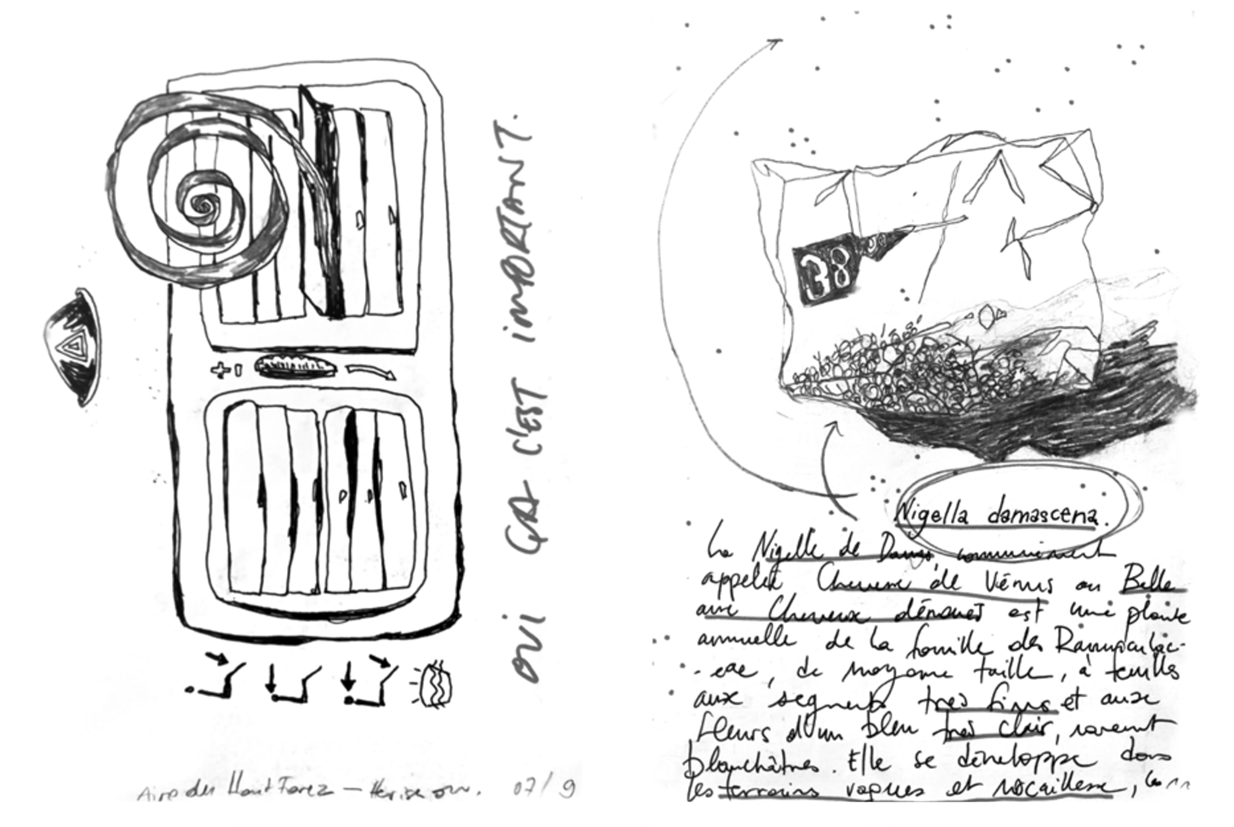 OUI ÇA C'EST IMPORTANT.
+
Aire du Haut Forez — 07/9
38
Nigella damascena.
La Nigelle de Damas communément
appelée Cheveux de Vénus ou Belle
aux Cheveux dénoués est une plante
annuelle de la famille des Ranunculac-
-eae, de moyenne taille, à feuilles
aux segments très fins et aux
fleurs d'un bleu très clair, souvent
blanchâtres. Elle se développe dans
les terrains vagues et rocailleux,